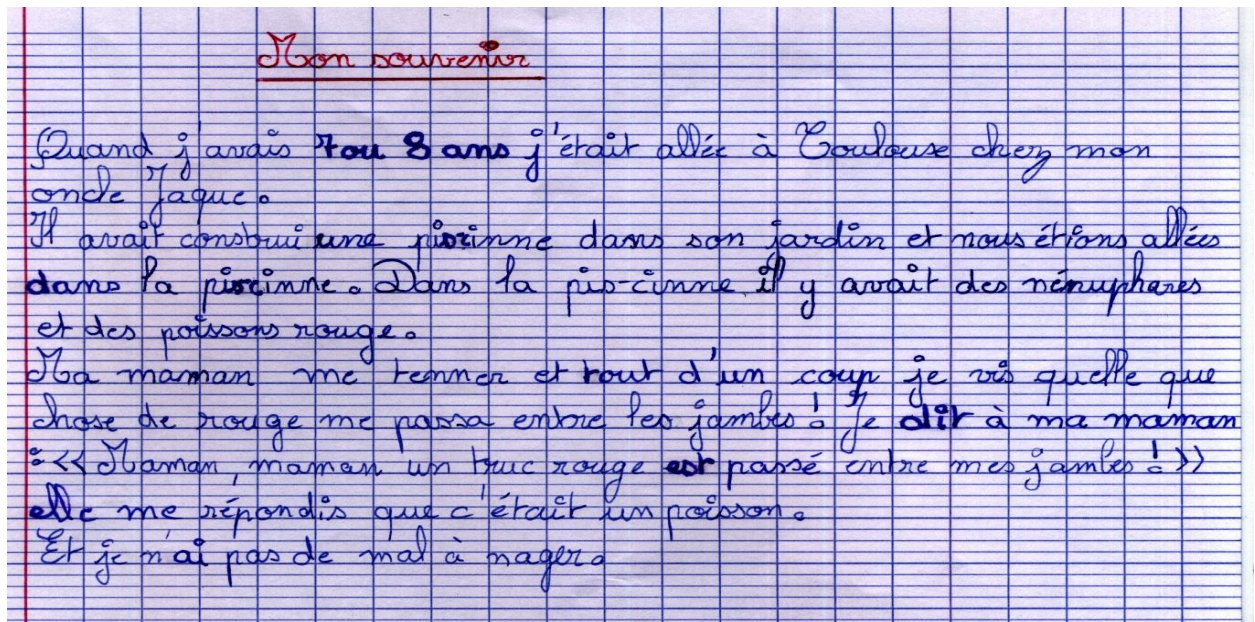 Mon souvenir
Quand j'avais 7 ou 8 ans j'était allée à Toulouse chez mon
oncle Jaque.
Il avait construi une piscinne dans son jardin et nous étions allées
dans la piscinne. Dans la pis-cinne il y avait des nénuphares
et des poissons rouge.
Ma maman me tenner et tout d'un coup je vis quelle que
chose de rouge me passa entre les jambes ! Je dit à ma maman
: << Maman, maman un truc rouge est passé entre mes jambes ! >>
elle me répondis que c'était un poisson.
Et je n'ai pas de mal à nager.